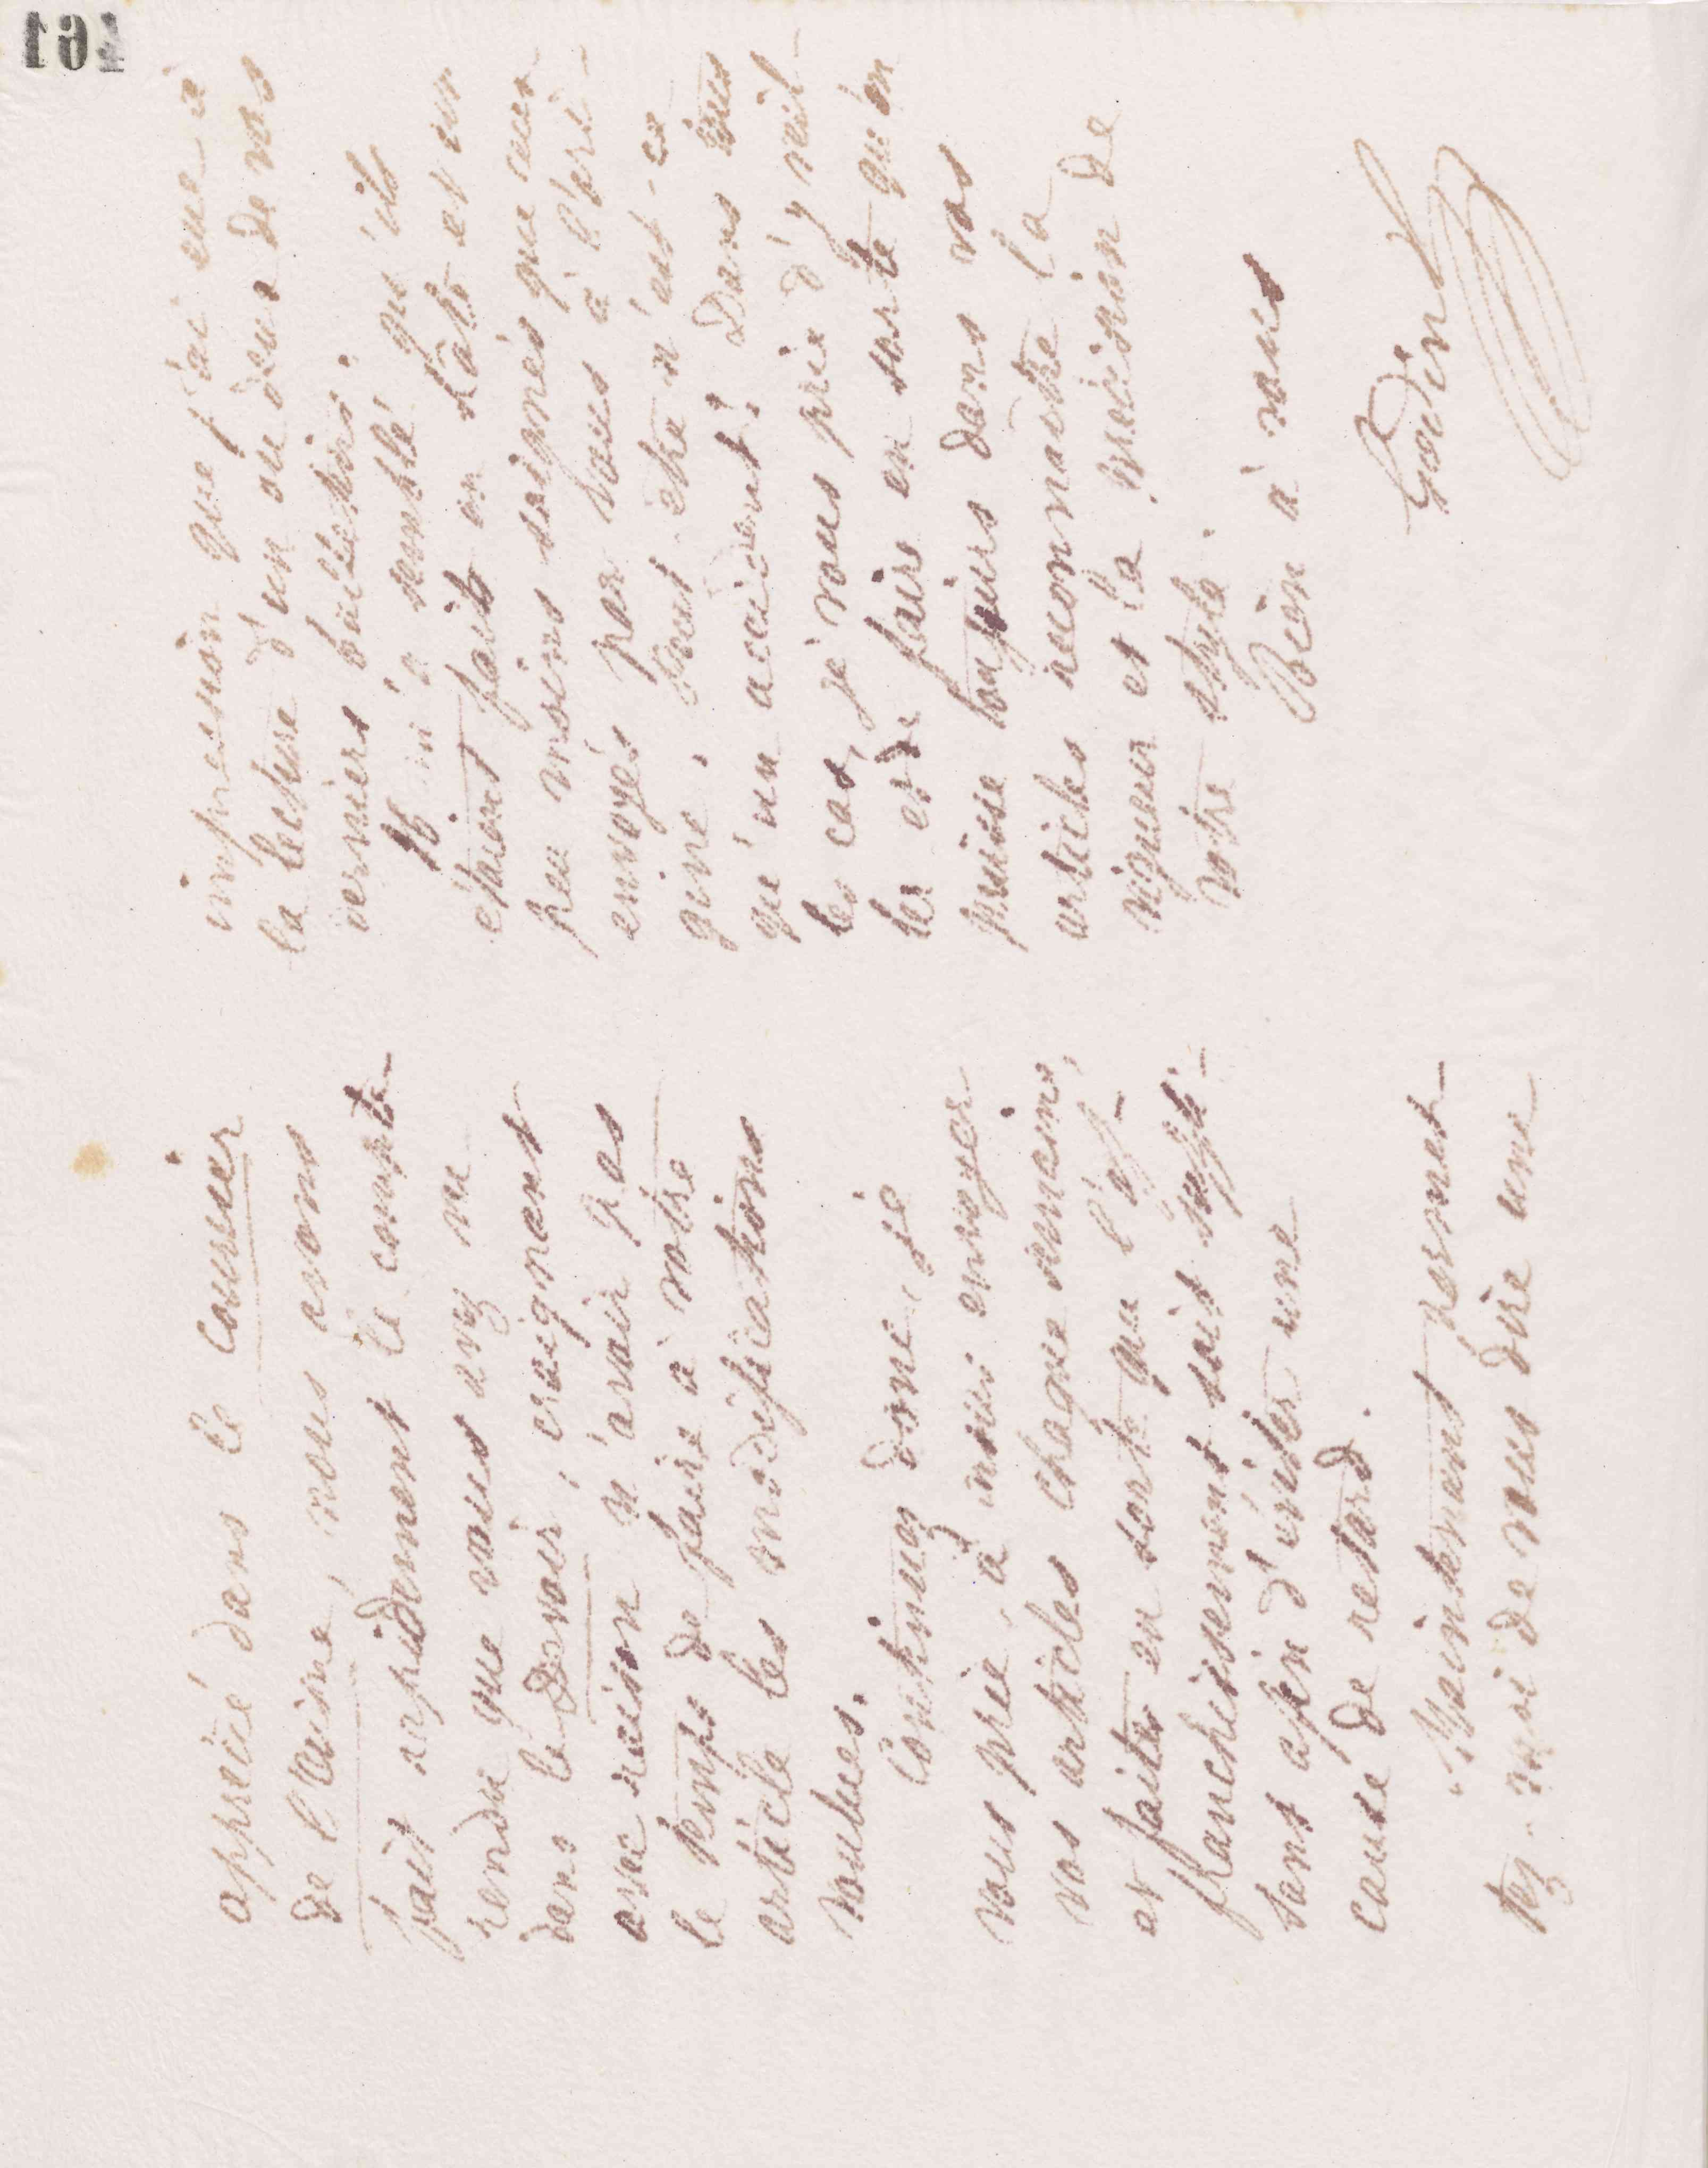 apprécié dans le Courrier
de l'Aisne, nous avons
fait rapidement le compte-
rendu que vous avez vu
dans le Devoir, craignant
avec raison n'avoir pas
le temps de faire à votre
article les modifications
voulues.
Continuez donc, je
vous prie, à nous envoyer
vos articles chaque semaine,
et faites en sorte que l'af-
franchissement soit suffi-
sant afin d'éviter une
cause de retard.
Maintenant permet-
tez-moi de vous dire une
impression que j'ai eue à
la lecture d'un ou deux de vos
derniers bulletins.
Il m'a semblé qu'ils
étaient faits en hâte et un
peu moins soignés que ceux
envoyés par vous à l'ori-
gine. Peut-être n'est-ce
qu'un accident! Dans tous
les cas, je vous prie d'y veil-
ler et de faire en sorte qu'on
puisse toujours dans vos
articles reconnaître la
vigueur et la précision de
votre style.
Bien à vous
Godin
461